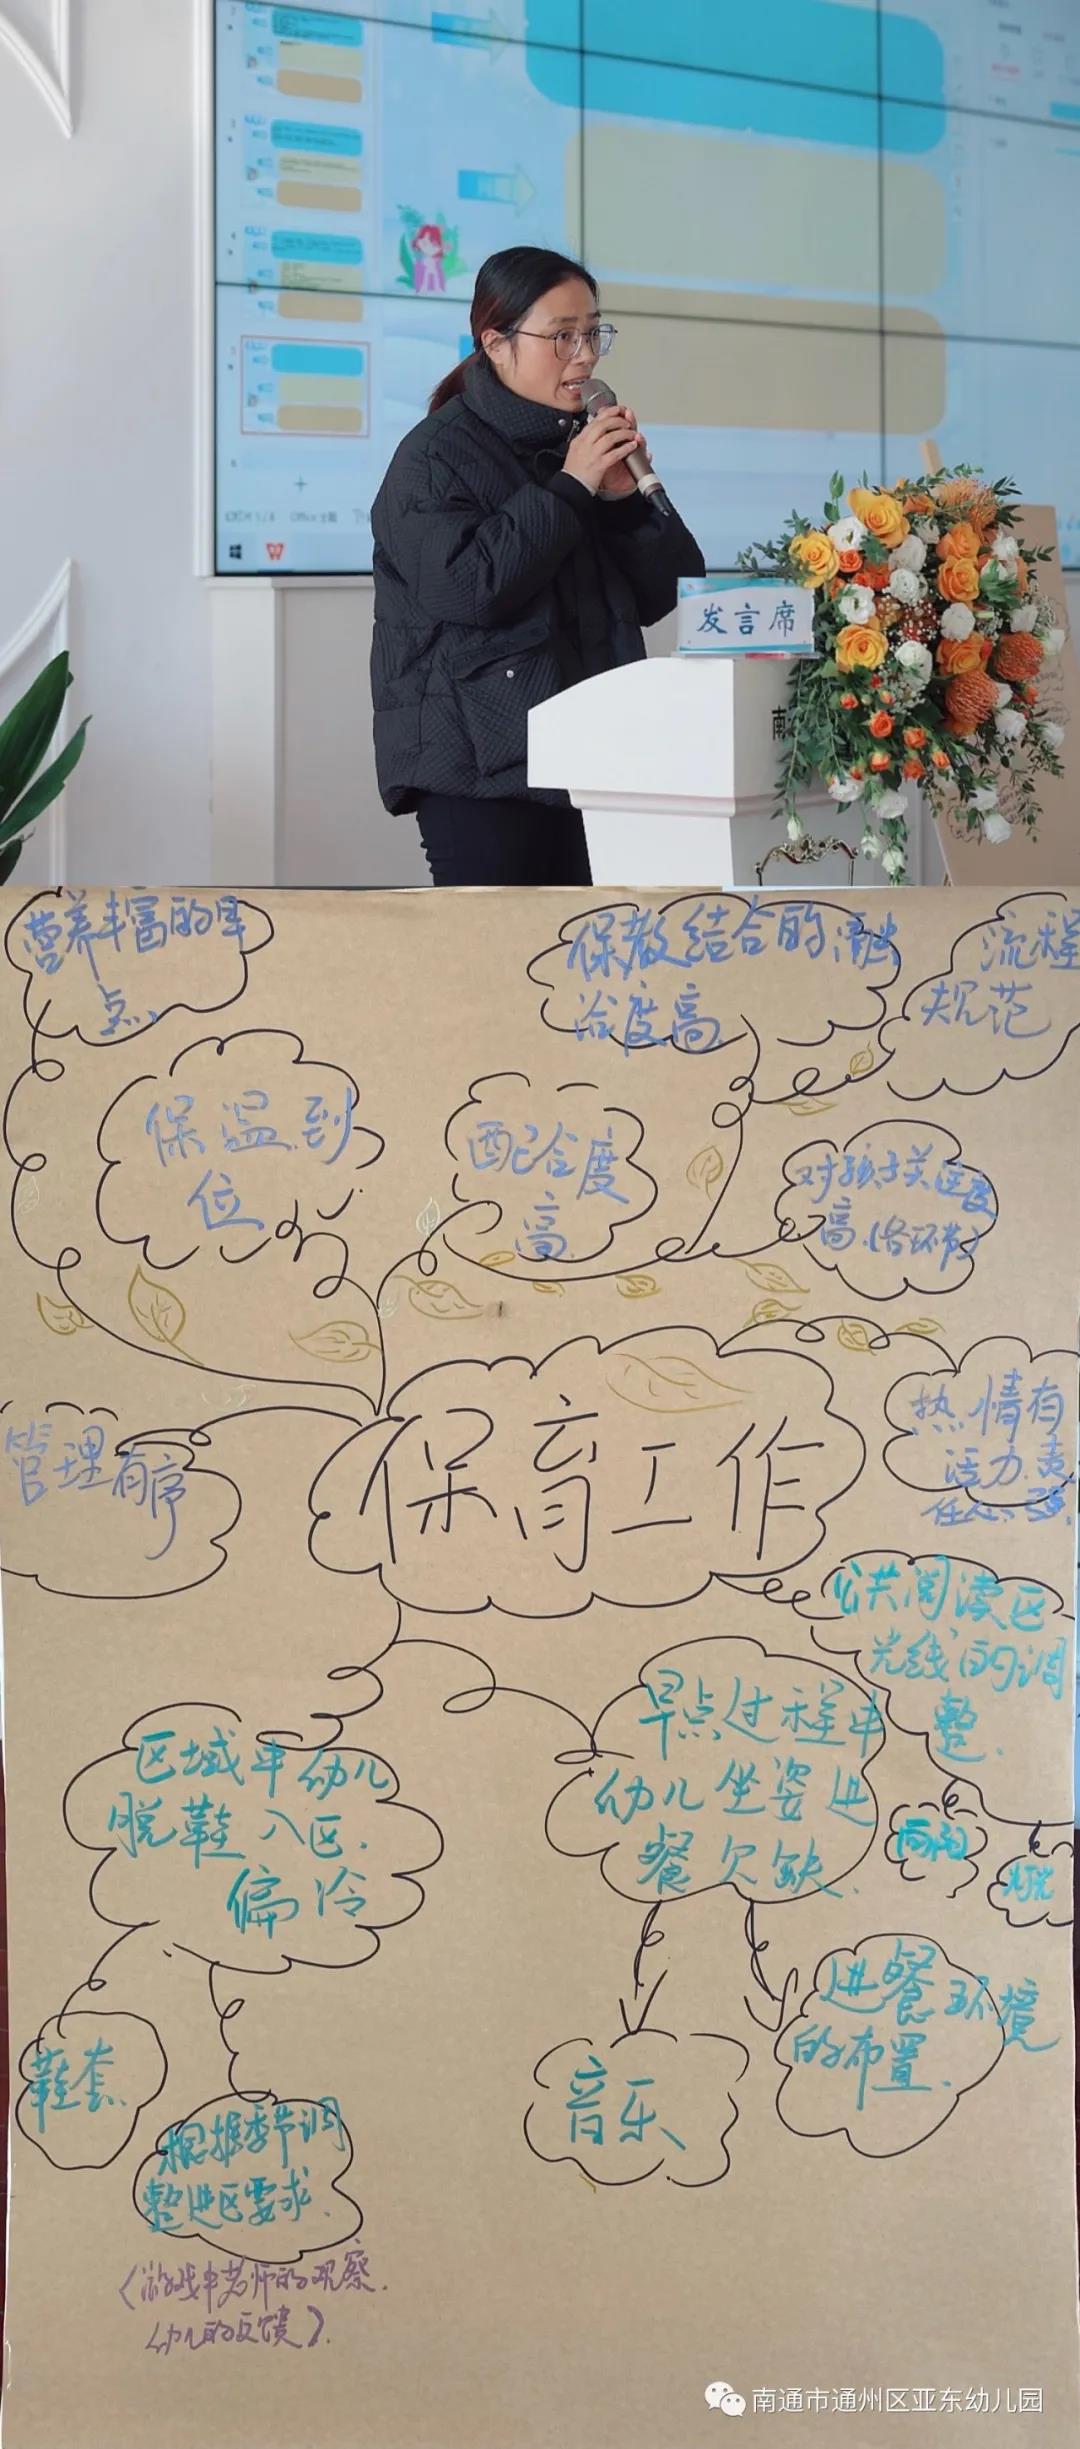 发言席
南
营养丰富的早
点
保教结合的渗出
洽度高
流程
规范
保温到
位
配合度
高
对孩子关注度
高(各环节)
管理有序
保育工作
热情有
活力.责
任心强.
公共阅读区
光线的调
整.
向阳
灯光
区域中幼儿
脱鞋入区.
偏冷
早点过程中
幼儿坐姿进
餐欠缺.
鞋套.
根据季节调
整进区要求.
(游戏中老师的观察.
幼儿的反馈).
音乐
进餐环境
的布置.
南通市通州区亚东幼儿园